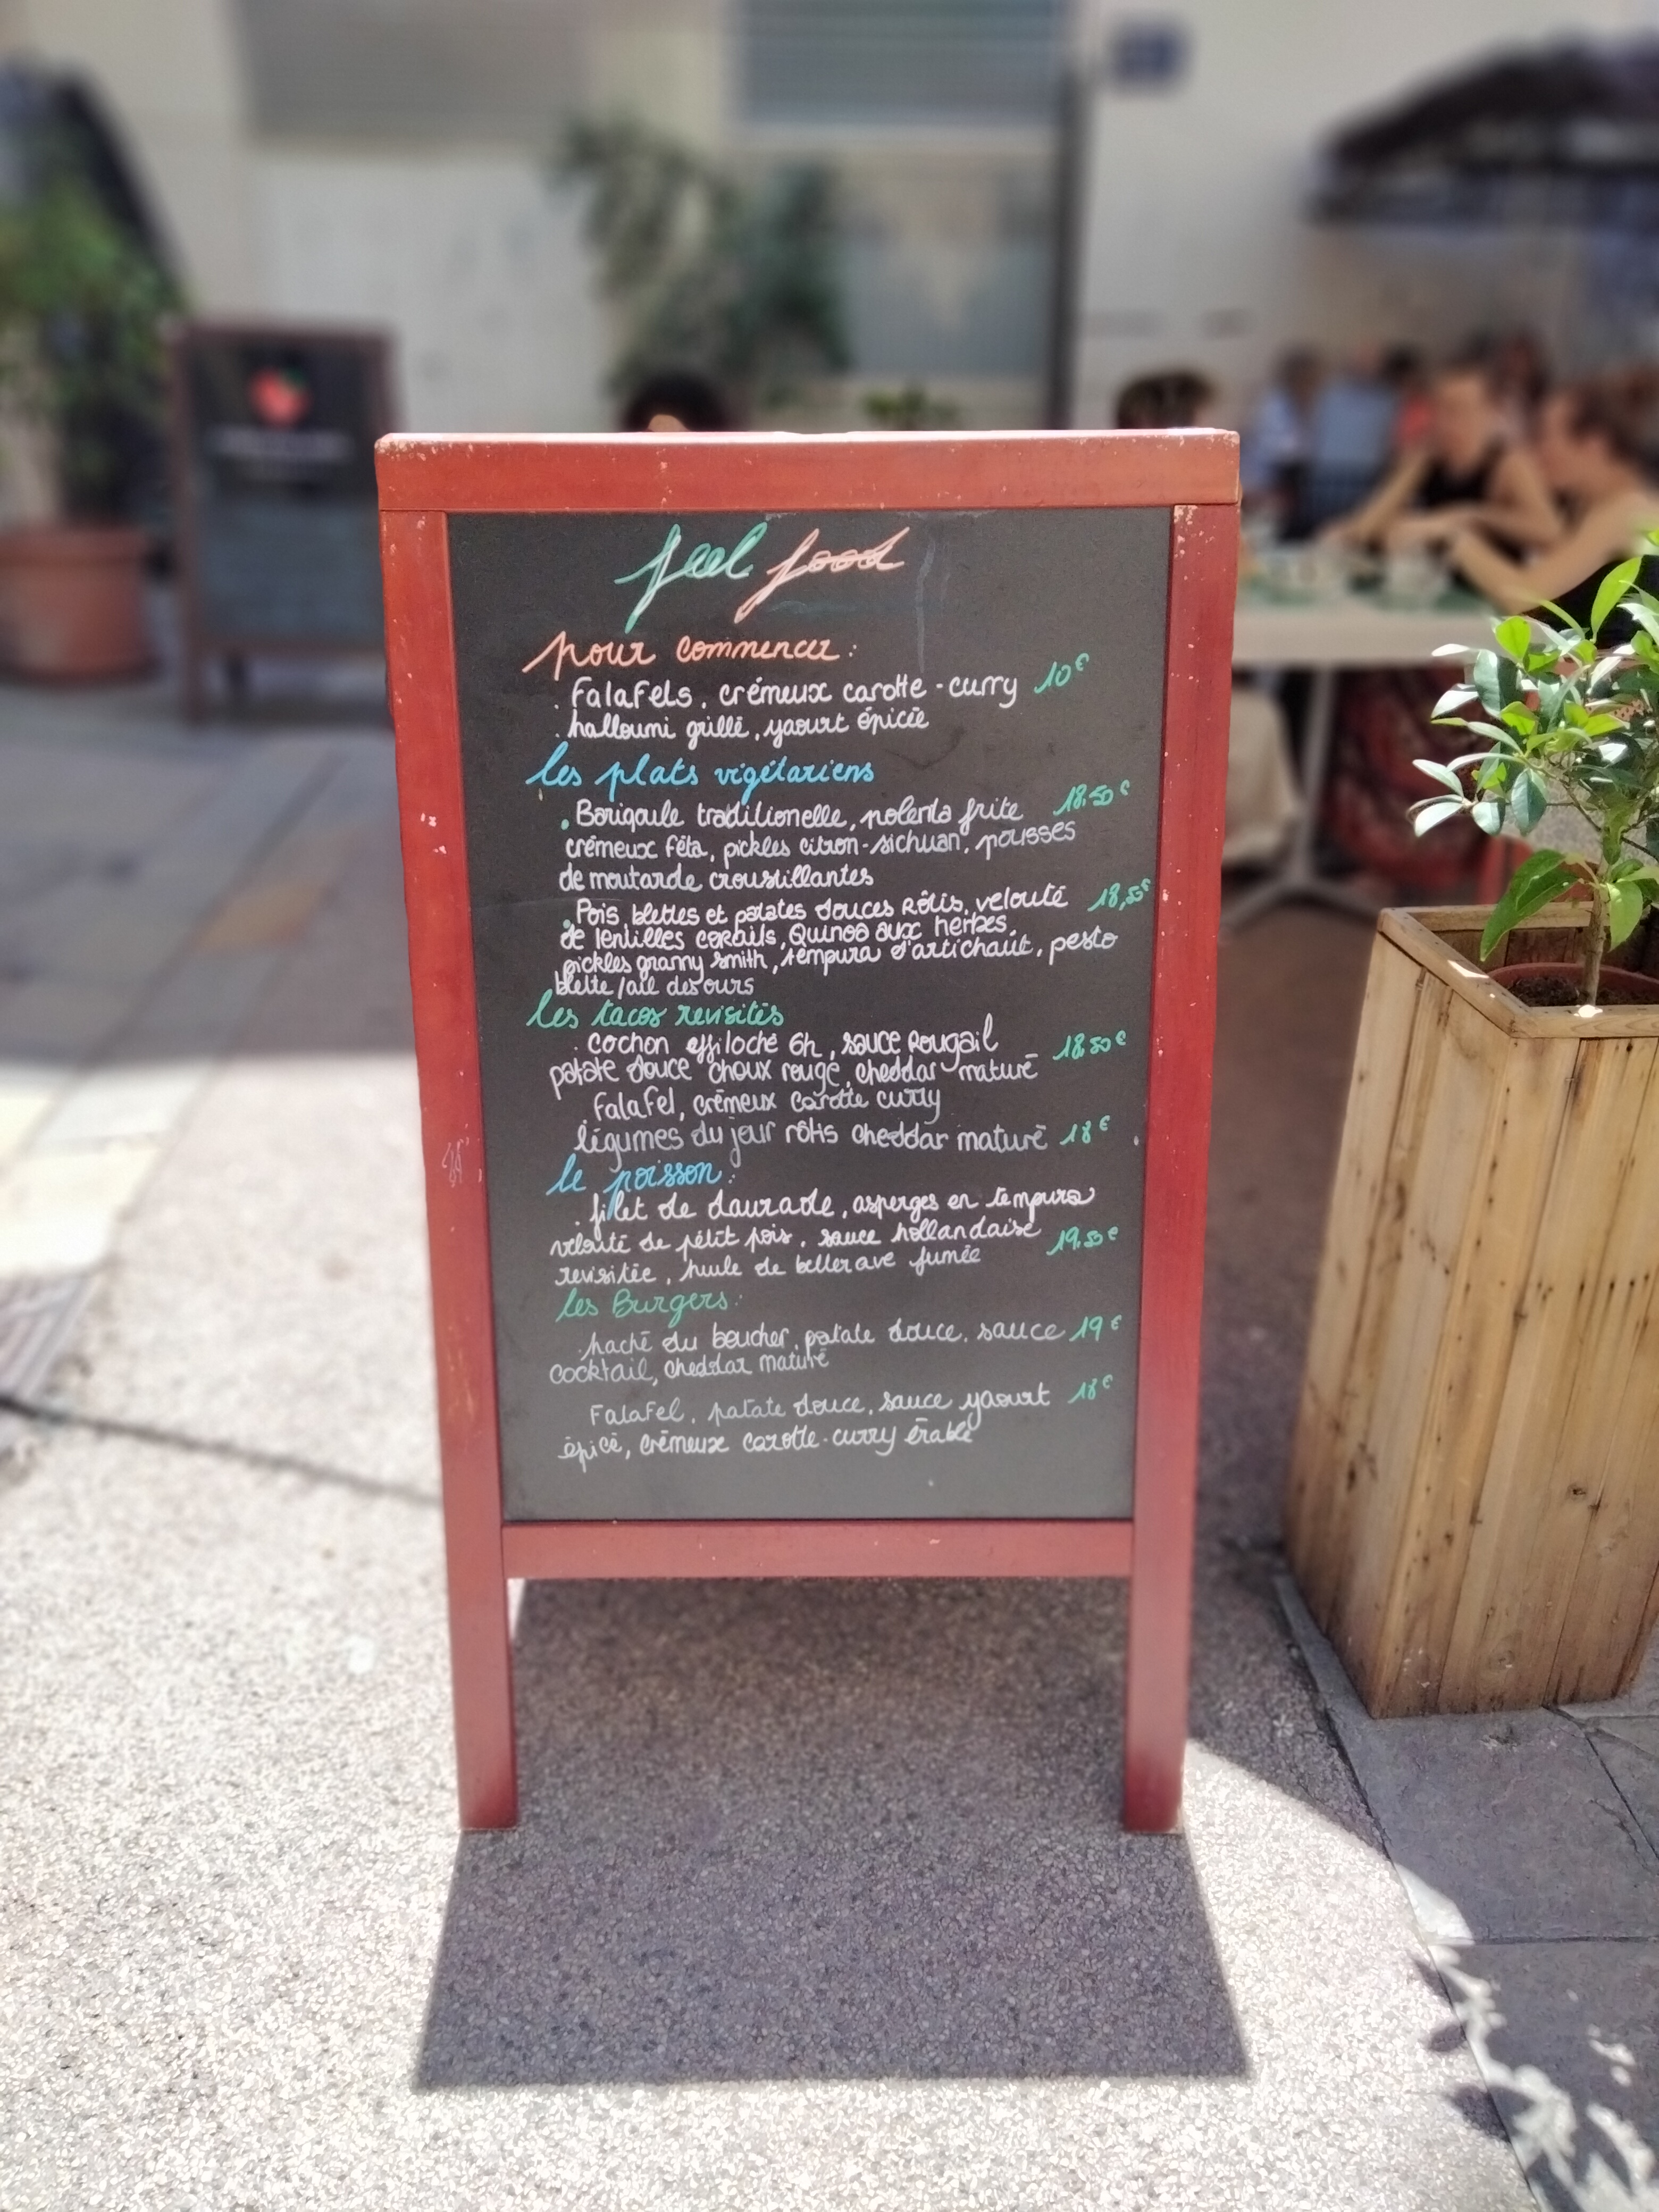 feel food
pour commencer :
. Falafels, crémeux carotte-curry 10€
. halloumi grillé, yaourt épicée
les plats végétariens
. Barigoule traditionelle, polenta frite 18.50€
crémeux féta, pickles citron-sichuan, pousses
de moutarde croustillantes
. Pois, blettes et patates douces rôtis, velouté 18,50€
de lentilles corails, Quinoa aux herbes,
pickles granny smith, tempura d'artichaut, pesto
blette/ail des ours
les tacos revisités
. cochon effiloché 6h, sauce rougail 18.50€
patate douce choux rouge, cheddar mature
falafel, crémeux carotte curry
légumes du jour rôtis cheddar mature 18€
le poisson :
. filet de daurade, asperges en tempura
velouté de petit pois, sauce hollandaise 19.50€
revisitée, huile de betterave fumée
les Burgers :
. haché du boucher, patate douce, sauce 19€
cocktail, cheddar mature
Falafel, patate douce, sauce yaourt 18€
épicé, crémeux carotte-curry érable